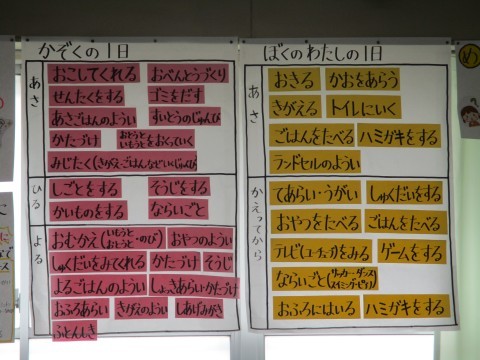 かぞくの1日
あさ
おこしてくれる おべんとうづくり
せんたくをする ゴミをだす
あさごはんのようい すいとうのじゅんび
かたづけ おとうといもうとをおくっていく
みじたく(きがえ・ごはんなど
ひる
しごとをする そうじをする
かいものをする ならいごと
よる
おむかえ(いもうとおとうと・のび) おやつのようい
しゅくだいをみてくれる かたづけ そうじ
よるごはんのようい しょっきあらいかたづけ
おふろあらい きがえのようい しあげみがき
ふとんしき
ぼくのわたしの1日
あさ
おきる かおをあらう
きがえる トイレにいく
ごはんをたべる ハミガキをする
ランドセルのようい
かえってから
てあらい・うがい しゅくだいをする
おやつをたべる ごはんをたべる
テレビ(ユーチューブ)をみる ゲームをする
ならいごと(サッカー・ダンス
おふろにはいる ハミガキをする
め